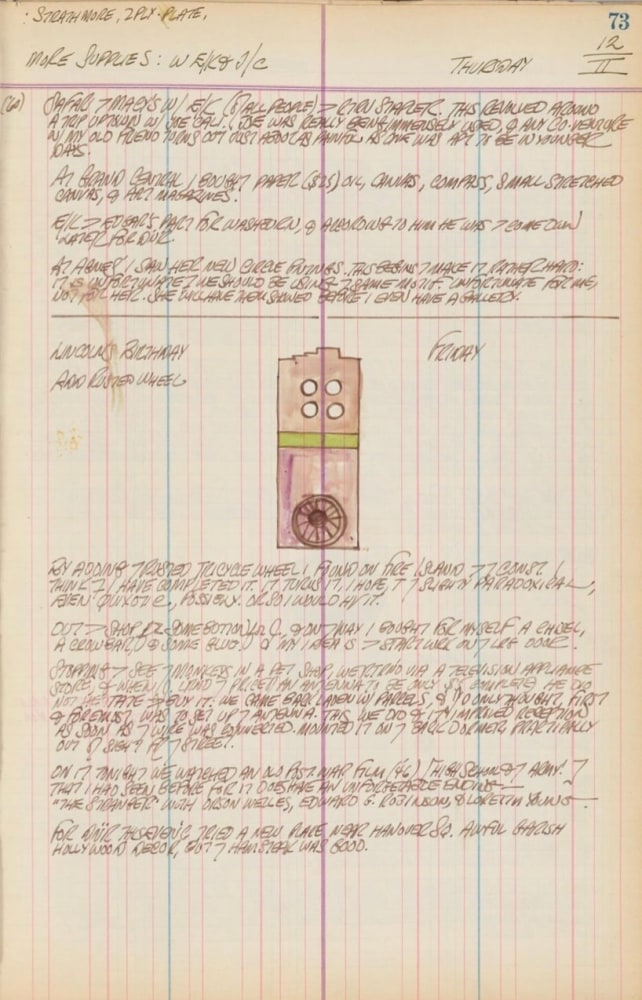 : STRATHMORE, 2PLY-PLATE,
73
MORE SUPPLIES: W E/K & J/C
THURSDAY
12
II
SAFARI 7 MACY'S W/ E/K (OF ALL PEOPLE) > STARTER. THIS REVOLVED AROUND
A TRIP UPTOWN W/ WAS REALLY BEING IMMENSELY USED, & ANY CO-VENTURE
W/ MY OLD FRIEND TURNS OUT JUST ABOUT AS PAINFUL AS ONE WAS APT TO BE IN YOUNGER
DAYS.
AT GRAND CENTRAL I BOUGHT PAPER ($25) OIL, CANVAS, COMPASS, SMALL STRETCHED
CANVAS, & ART MAGAZINES.
E/K > EDGAR'S PART FOR & ACCORDING TO HIM HE WAS > COME DOWN
LATER FOR
AT AGNES' I SAW HER NEW CIRCLE PAINTINGS. THIS BEGINS 7 MAKE IT RATHER HARD:
IT IS UNFORTUNATE 7 WE SHOULD BE USING 7 SAME MOTIF. UNFORTUNATE FOR ME,
NOT FOR HER. SHE WILL HAVE THEM SHOWED BEFORE I EVEN HAVE A GALLERY.
LINCOLN'S BIRTHDAY
FRIDAY
ADD RUSTED WHEEL
BY ADDING 7 RUSTED TRICYCLE WHEEL I FOUND ON FIRE ISLAND > 7 CONST. I
THINK 7 I HAVE COMPLETED IT. IT TURNS 7 I HOPE, 7 SLIGHTLY PARADOXICAL,
EVEN QUIXOTIC, POSSIBLY. OR SO I WOULD HV IT.
OUT > SHOP SOME & ON 7 WAY I BOUGHT FOR MYSELF A CHISEL,
A CROWBAR, & SOME GLUE. & MY IDEA IS > START WRK ON 7 DOOR.
STOPPING > SEE 7 MONKEYS IN A PET SHOP, WE RETRND VIA A TELEVISION APPLIANCE
STORE, & WHEN 7 PRICE AN ANTENNA TO BE ONLY COMPLETE HE DID
NOT HESITATE > BUY IT. WE CAME BACK LADEN W/ PARCELS, & ONLY THOUGHT, FIRST
& FOREMOST, WAS TO SET UP 7 ANTENNA. THIS WE DID & IT IMPROVED RECEPTION
AS SOON AS 7 WIRE WAS CONNECTED. MOUNTED IT ON 7 BACK DORMER, PRACTICALLY
OUT OF SIGHT OF 7 STREET.
ON IT TONIGHT WE WATCHED AN OLD POST-WAR FILM (46)
THAT I HAD SEEN BEFORE FOR IT DOES HAVE AN UNFORGETTABLE ENDING—
"THE STRANGER" WITH ORSON WELLES, EDWARD G. ROBINSON, & LORETTA YOUNG—
FOR THIS EVEN'G TRIED A NEW PLACE NEAR HANOVER SQ. AWFUL GARISH
HOLLYWOOD DECOR, BUT 7 HAM STEAK WAS GOOD.